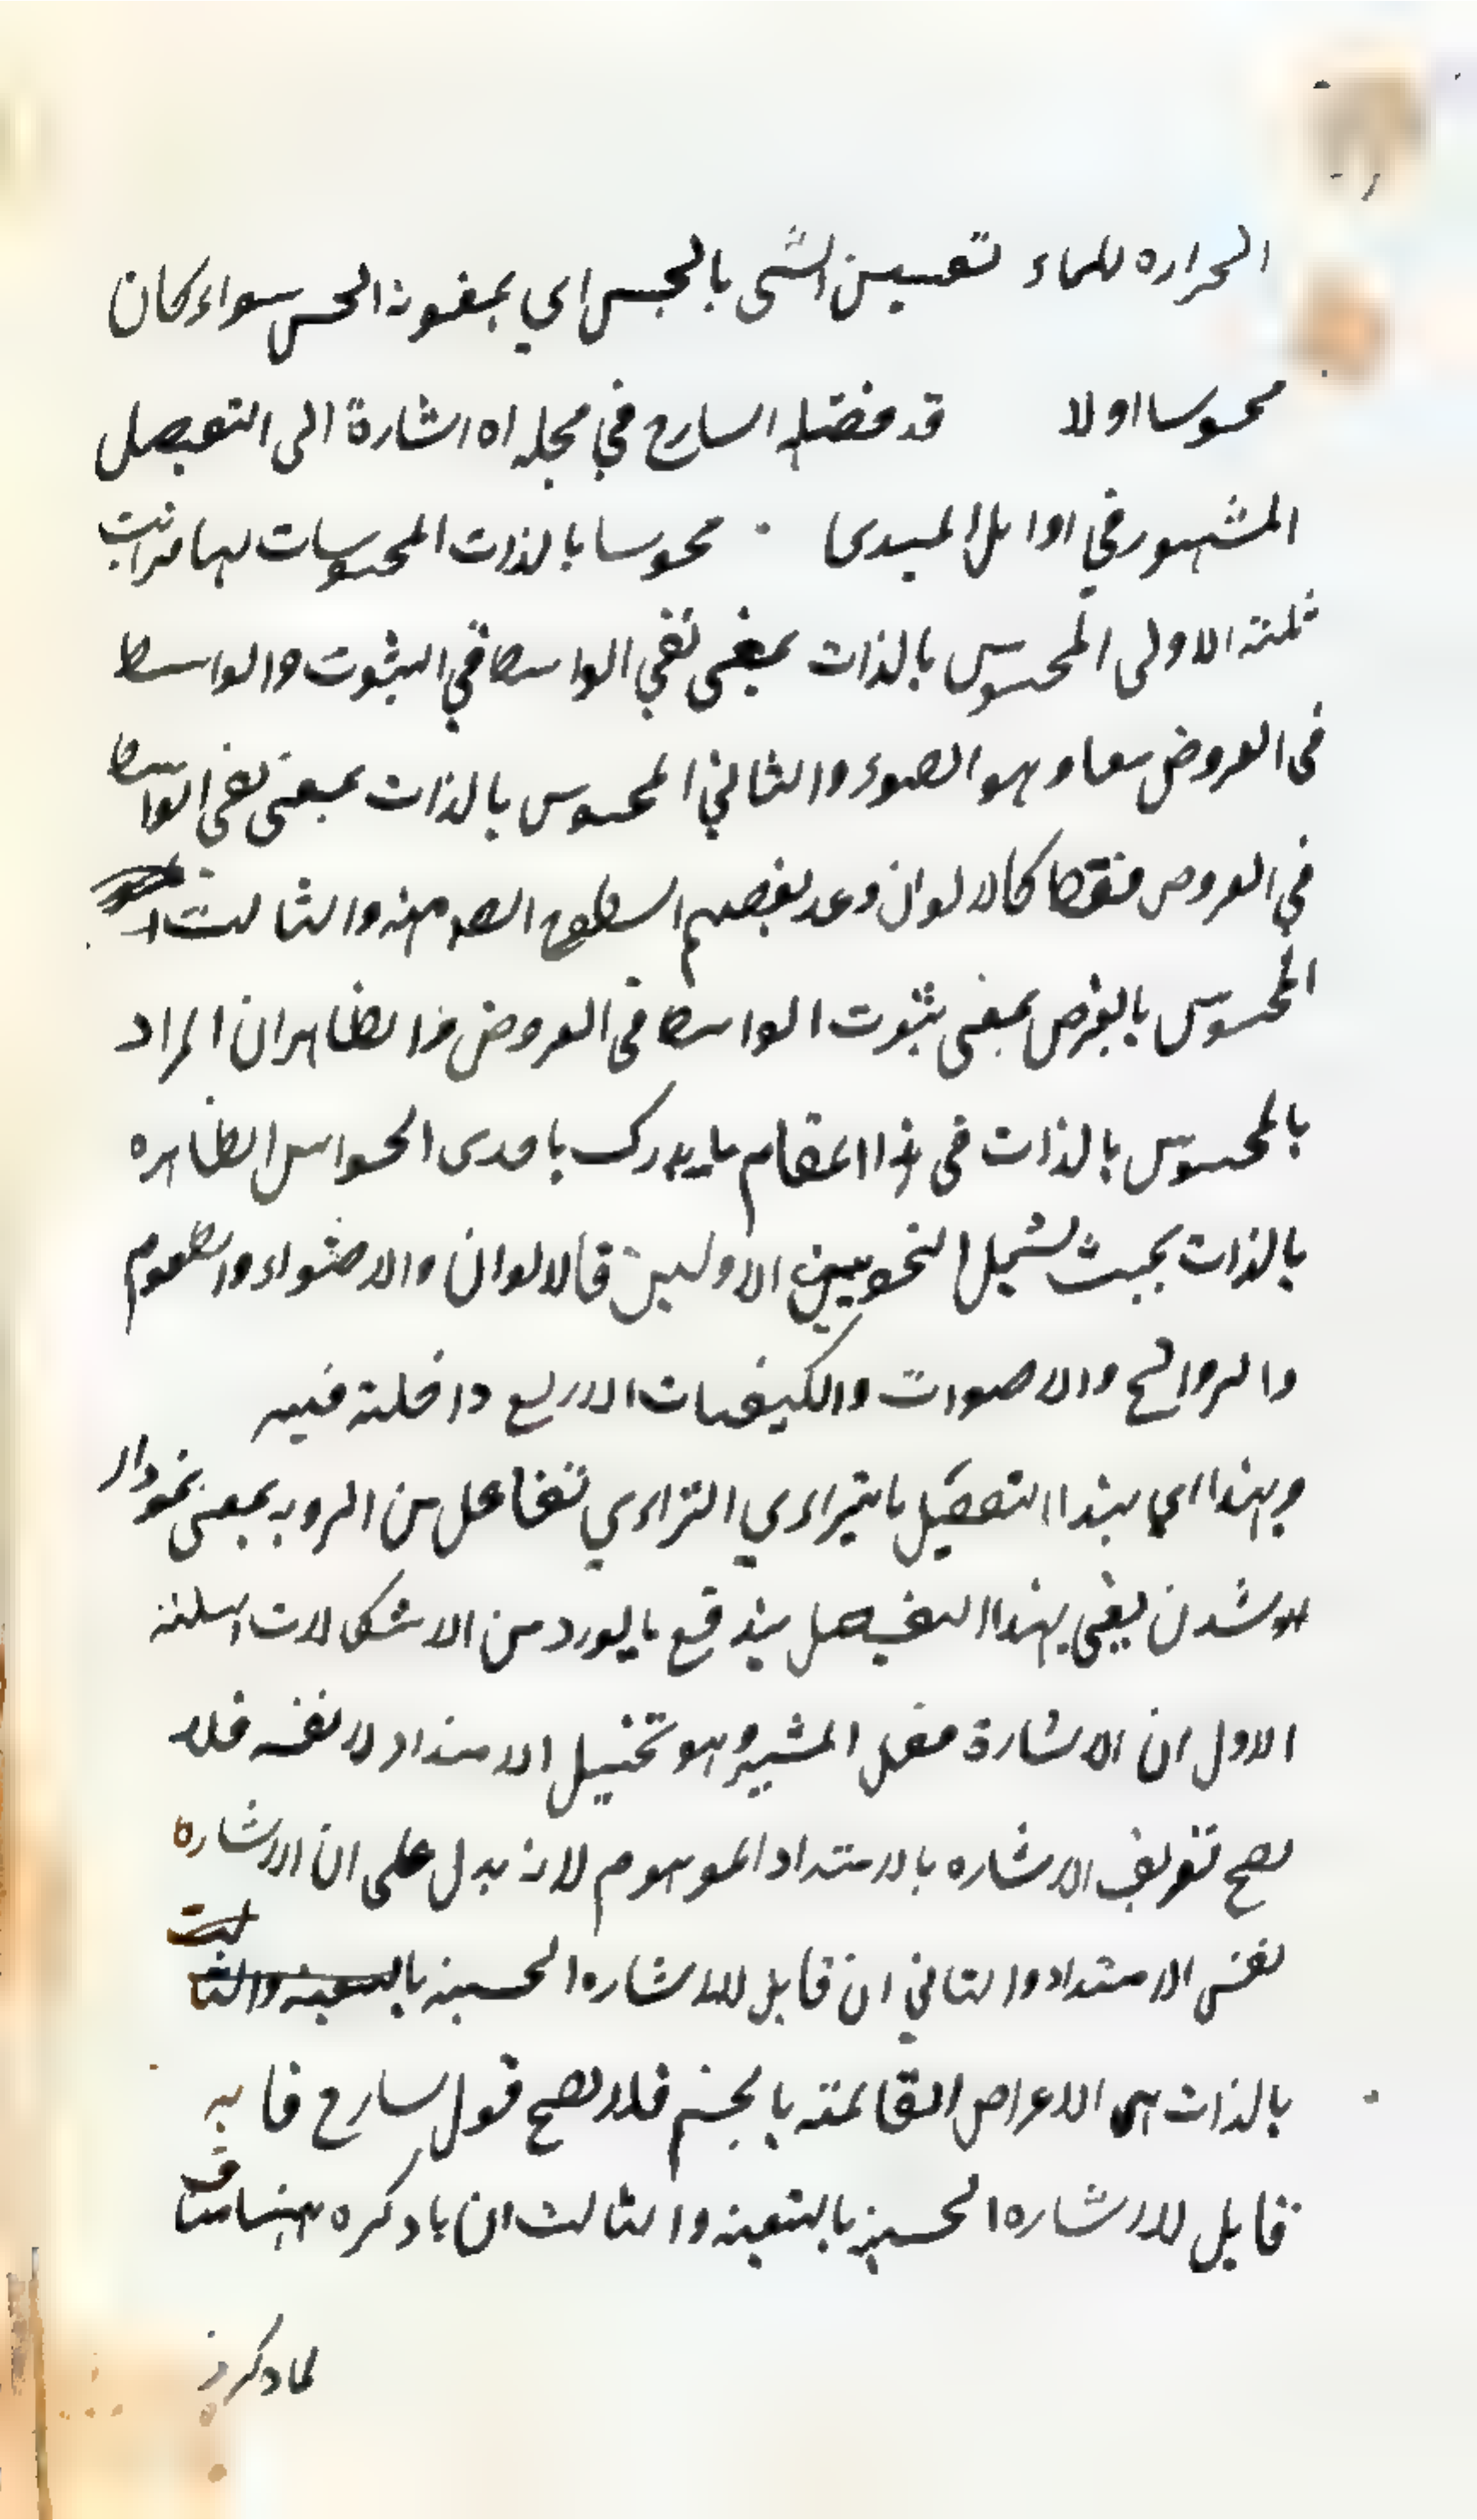 الحراره للماء تعيين الشى بالحس اي بمعونة الحس سواء كان
محسوسا اولا قد فصله الشارح في محله اه اشارة الى التفصيل
المشهور في اوايل الميبدى محسوسا بالذات المحسوسات لها مراتب
ثلثة الاولى المحسوس بالذات بمعنى نفي الواسطة في الثبوت والواسطة
فى العروض معا وهو الضوء والثاني المحسوس بالذات بمعنى نفي الواسطة
في العروض فقط كالالوان وعد بعضهم السطوح ايضا منه والثالث
المحسوس بالعرض بمعنى ثبوت الواسطة فى العروض والظاهر ان المراد
بالمحسوس بالذات فى هذا المقام ما يدرك باحدى الحواس الظاهره
بالذات بحيث يشمل النحويين الاولين فالالوان والاضواء والطعوم
والروائح والاصوات والكيفيات الاربع داخلة فيه
وبهذا اى بهذا التفصيل ما يتراءي الترائي تفاعل من الروية بمعنى نمودار
شدن يعنى بهذا التفصيل يندفع ما يورد من الاشكالات الثلثة
الاول ان الاشارة فعل المشير وهو تخييل الامتداد لا نفسه فلا
يصح تعريف الاشاره بالامتداد الموهوم لانه يدل على ان الاشاره
نفس الامتداد والثاني ان قابل الاشاره الحسية
بالذات هى الاعراض القائمة بالجسم فلا يصح قول الشارح فانه
قابل للاشاره الحسية بالتبعية والثالث ان ما ذكره ههنا مناف
لما ذكره